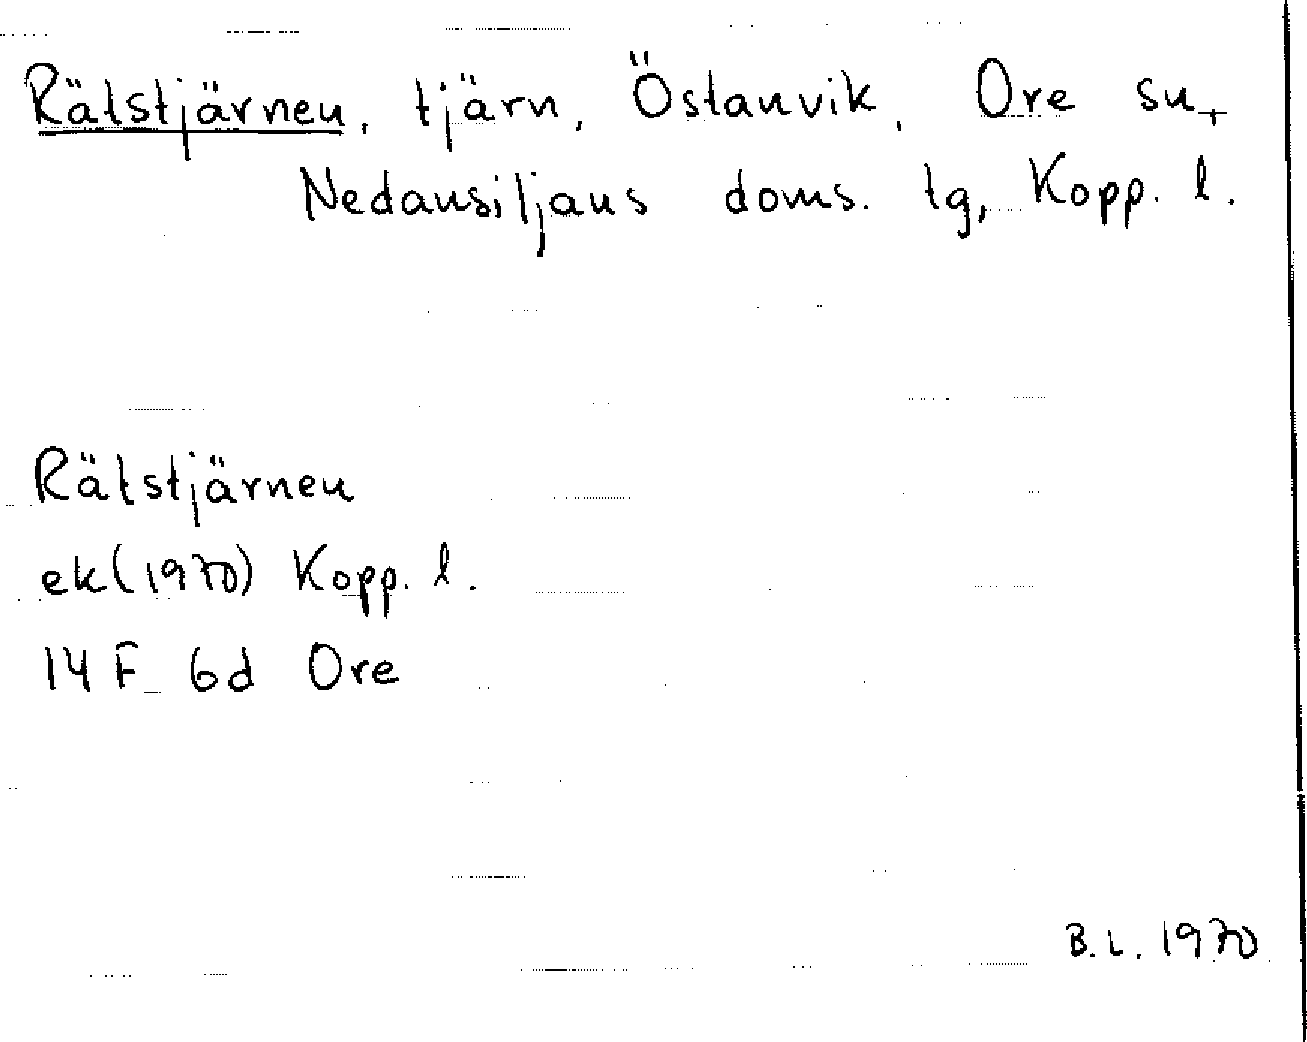 Rätstjärnen, tjärn, Östanvik, Ore sn,
Nedansiljans doms. tg, Kopp. l.
Rätstjärnen
ek(1970) Kopp. l.
14 F 6d Ore
B.L. 1970